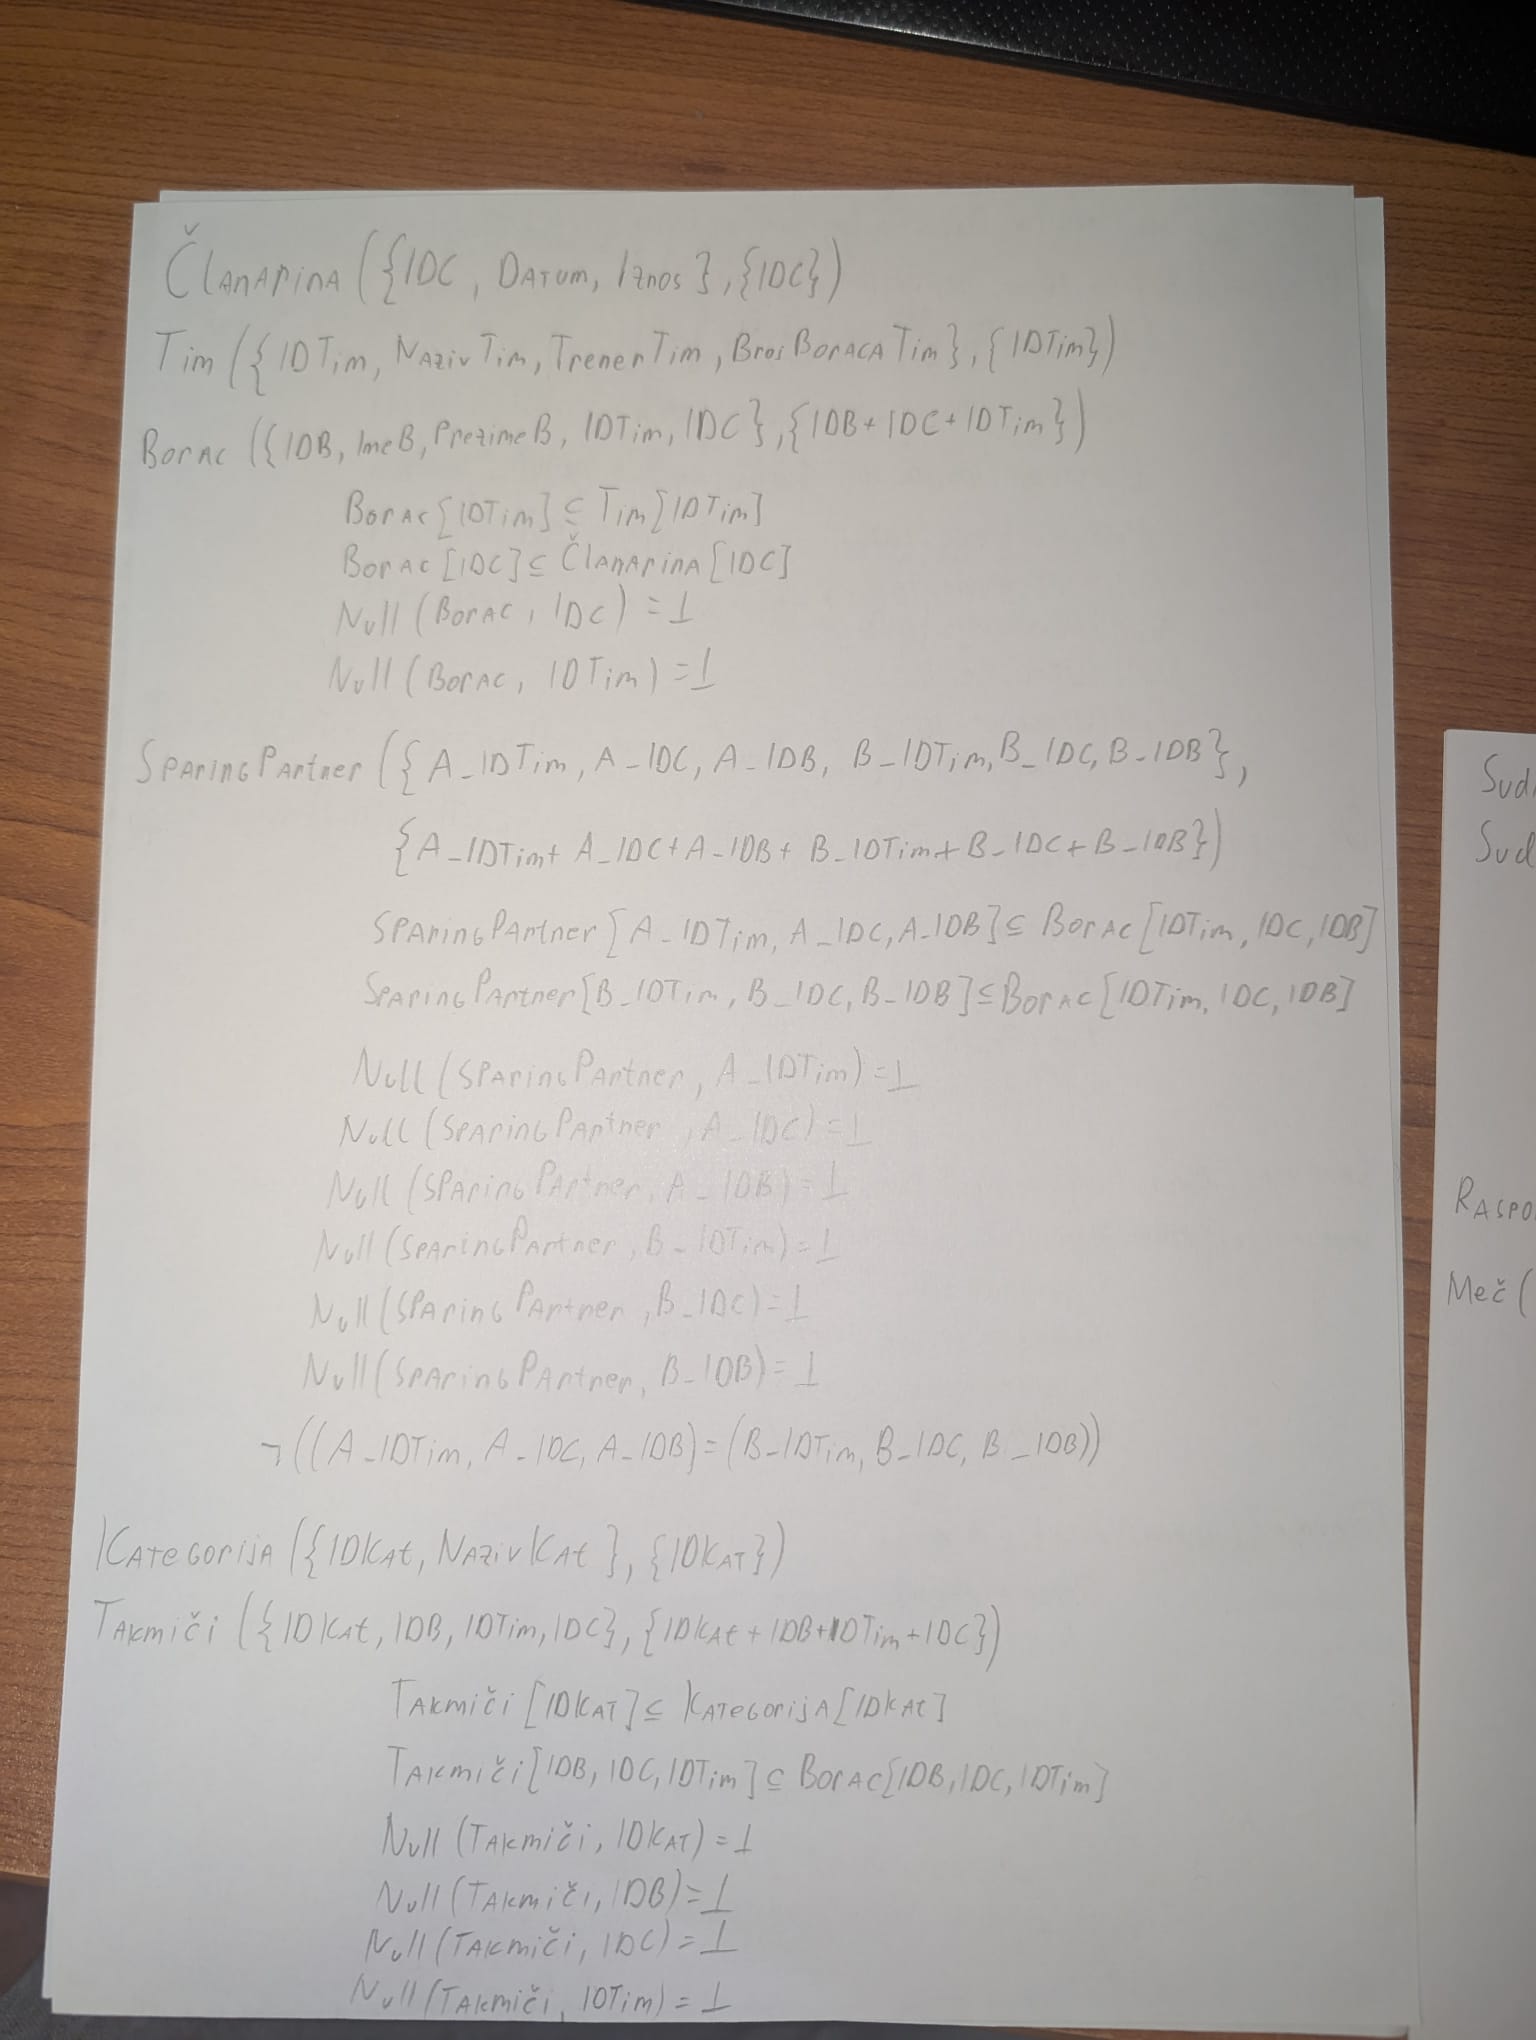 Članarina ({IDC, Datum, Iznos}, {IDC})
Tim ({IDTim, NazivTim, TrenerTim, BrojBoracaTim}, {IDTim})
Borac ({IDB, ImeB, PrezimeB, IDTim, IDC}, {IDB+IDC+IDTim})
Borac[IDTim] ⊆ Tim[IDTim]
Borac[IDC] ⊆ Članarina[IDC]
Null(Borac, IDC) = ⊥
Null(Borac, IDTim) = ⊥
SparingPartner ({A_IDTim, A_IDC, A_IDB, B_IDTim, B_IDC, B_IDB},
{A_IDTim+A_IDC+A_IDB+B_IDTim+B_IDC+B_IDB})
SparingPartner[A_IDTim, A_IDC, A_IDB] ⊆ Borac[IDTim, IDC, IDB]
SparingPartner[B_IDTim, B_IDC, B_IDB] ⊆ Borac[IDTim, IDC, IDB]
Null(SparingPartner, A_IDTim) = ⊥
Null(SparingPartner, A_IDC) = ⊥
Null(SparingPartner, A_IDB) = ⊥
Null(SparingPartner, B_IDTim) = ⊥
Null(SparingPartner, B_IDC) = ⊥
Null(SparingPartner, B_IDB) = ⊥
¬((A_IDTim, A_IDC, A_IDB) = (B_IDTim, B_IDC, B_IDB))
Kategorija ({IDKat, NazivKat}, {IDKat})
Takmiči ({IDKat, IDB, IDTim, IDC}, {IDKat+IDB+IDTim+IDC})
Takmiči[IDKat] ⊆ Kategorija[IDKat]
Takmiči[IDB, IDC, IDTim] ⊆ Borac[IDB, IDC, IDTim]
Null(Takmiči, IDKat) = ⊥
Null(Takmiči, IDB) = ⊥
Null(Takmiči, IDC) = ⊥
Null(Takmiči, IDTim) = ⊥
Sud
Sud
Raspo
Meč (